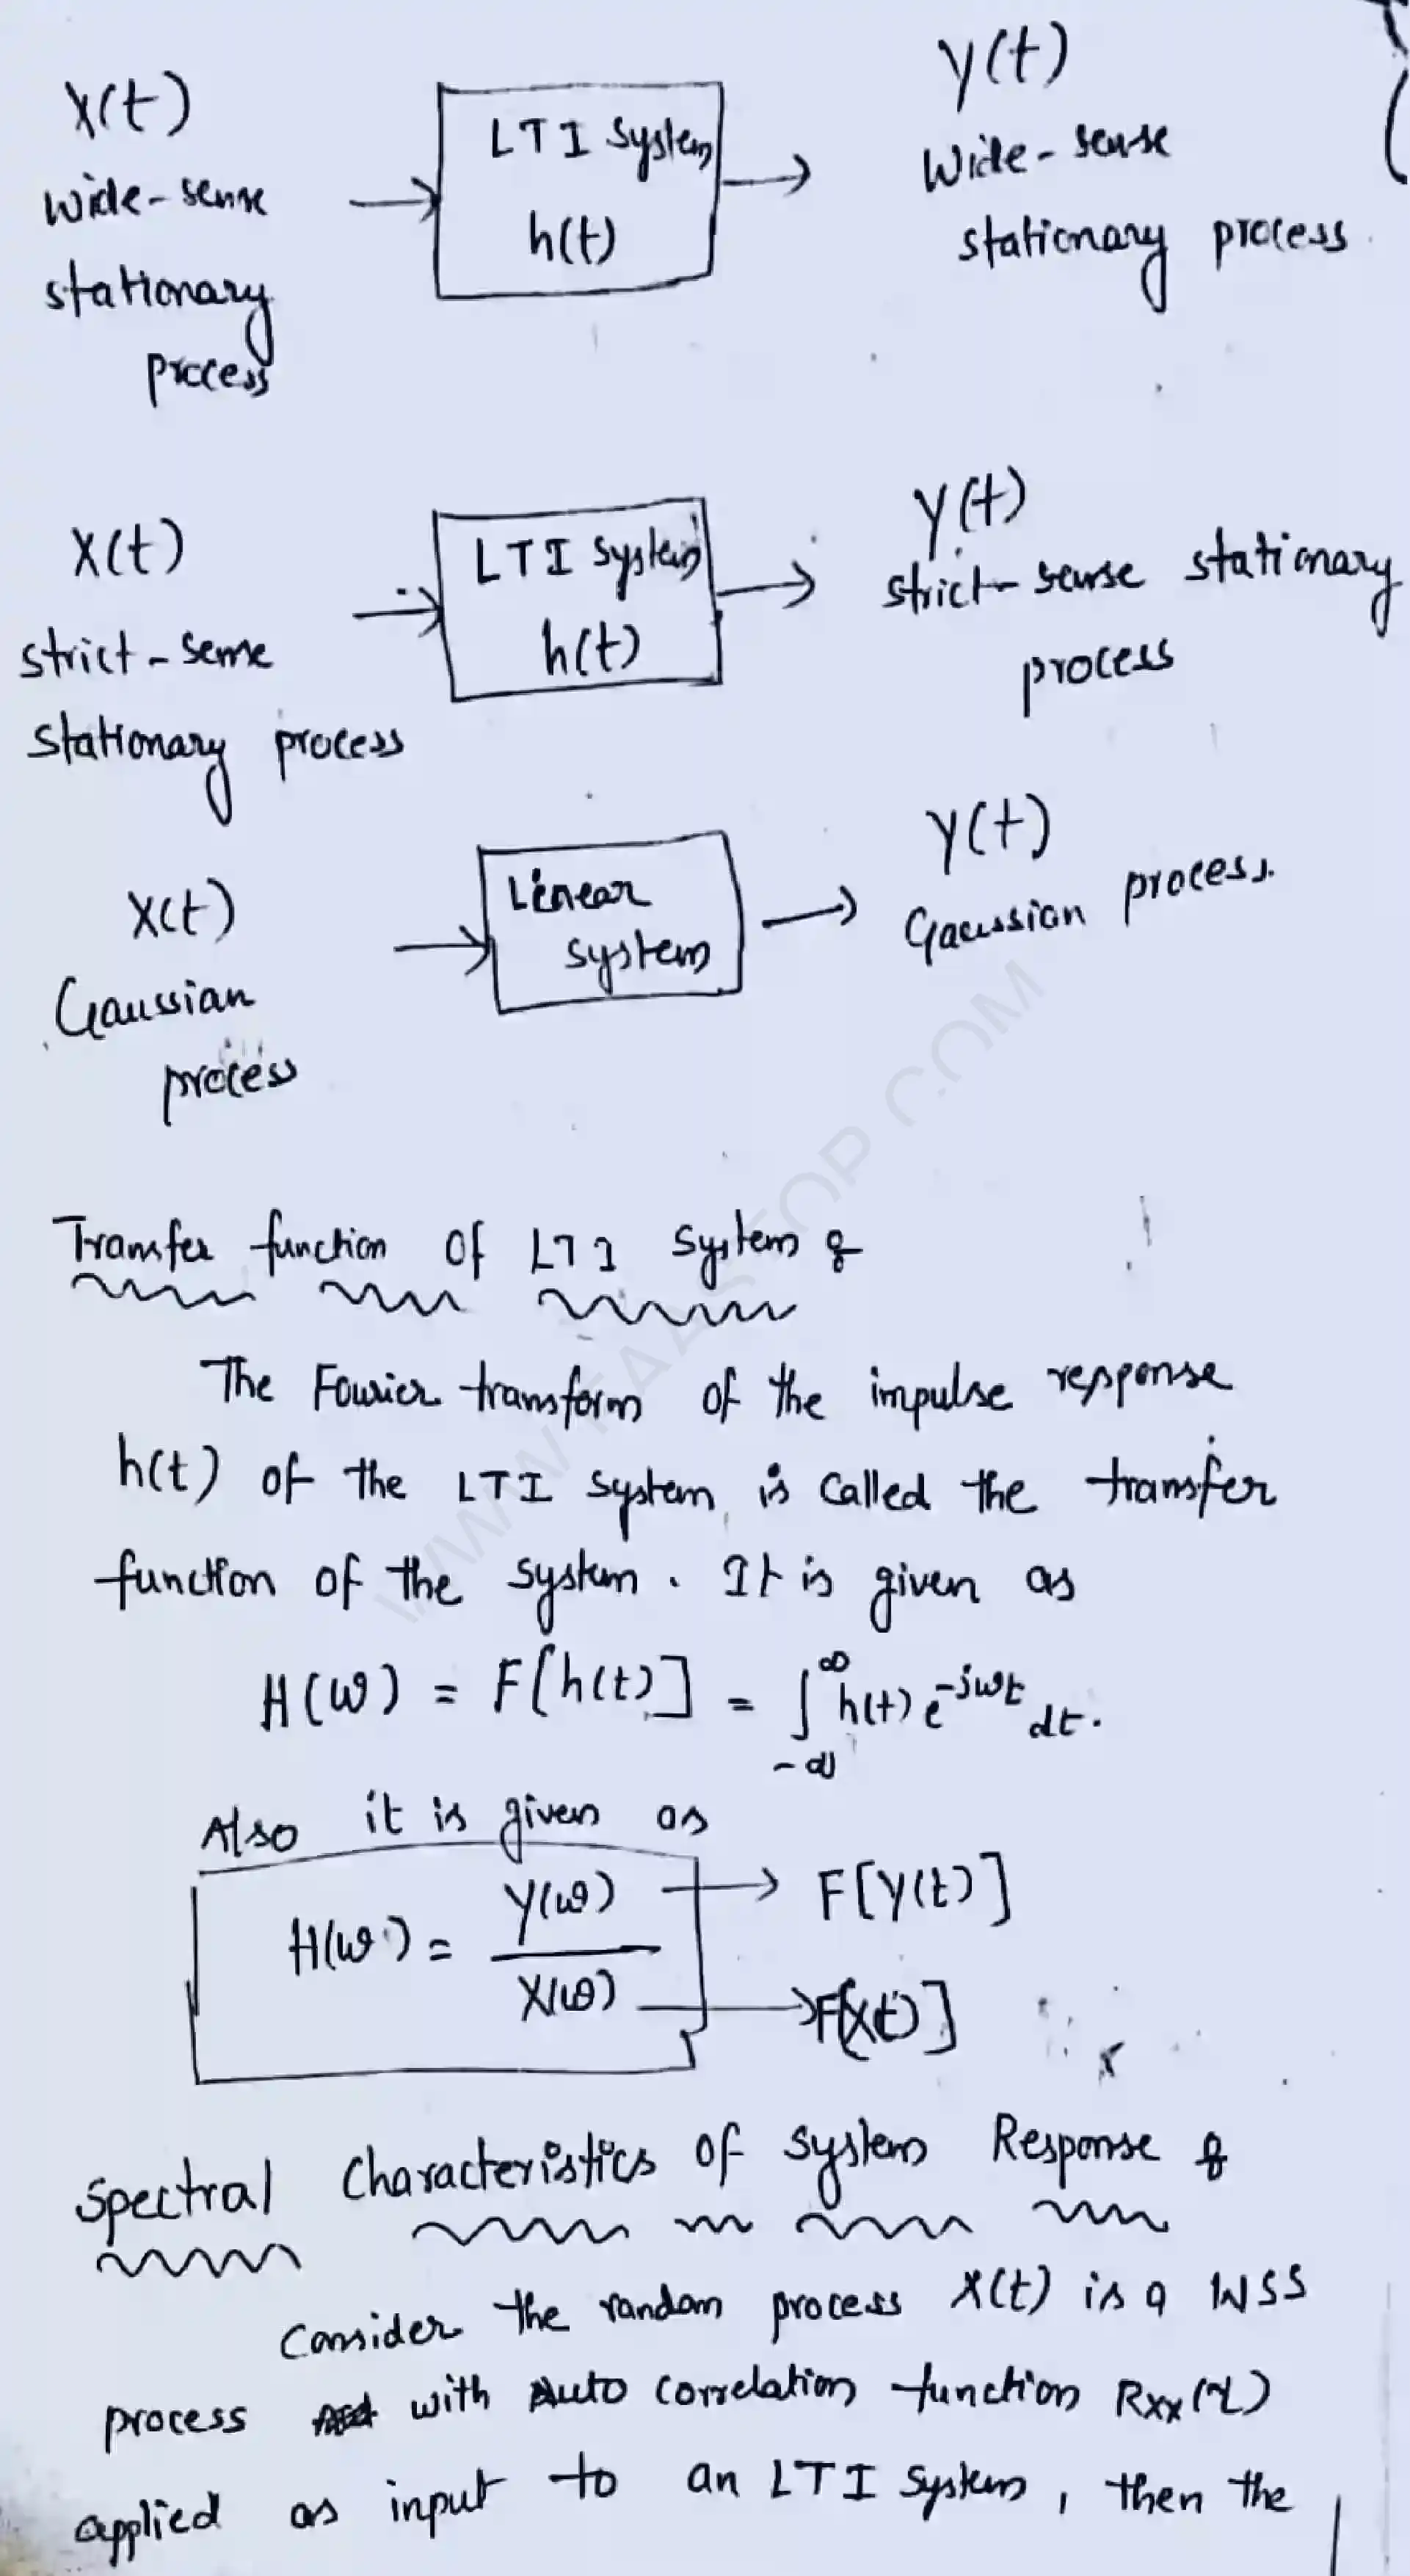 X(t)
wide-sense
stationary
process
LTI system
h(t)
Y(t)
Wide-sense
stationary process
X(t)
strict-sense
stationary process
LTI system
h(t)
Y(t)
strict-sense stationary
process
X(t)
Gaussian
process
Linear
system
Y(t)
Gaussian process.
Transfer function of LTI system :
The Fourier transform of the impulse response
h(t) of the LTI system is called the transfer
function of the system. It is given as
H(ω) = F[h(t)] = ∫_{-∞}^{∞} h(t) e^{-jωt} dt.
Also it is given as
H(ω) = Y(ω) / X(ω)
→ F[Y(t)]
→ F[X(t)]
Spectral Characteristics of System Response :
Consider the random process X(t) is a WSS
process with Auto correlation function Rxx(τ)
applied as input to an LTI system, then the